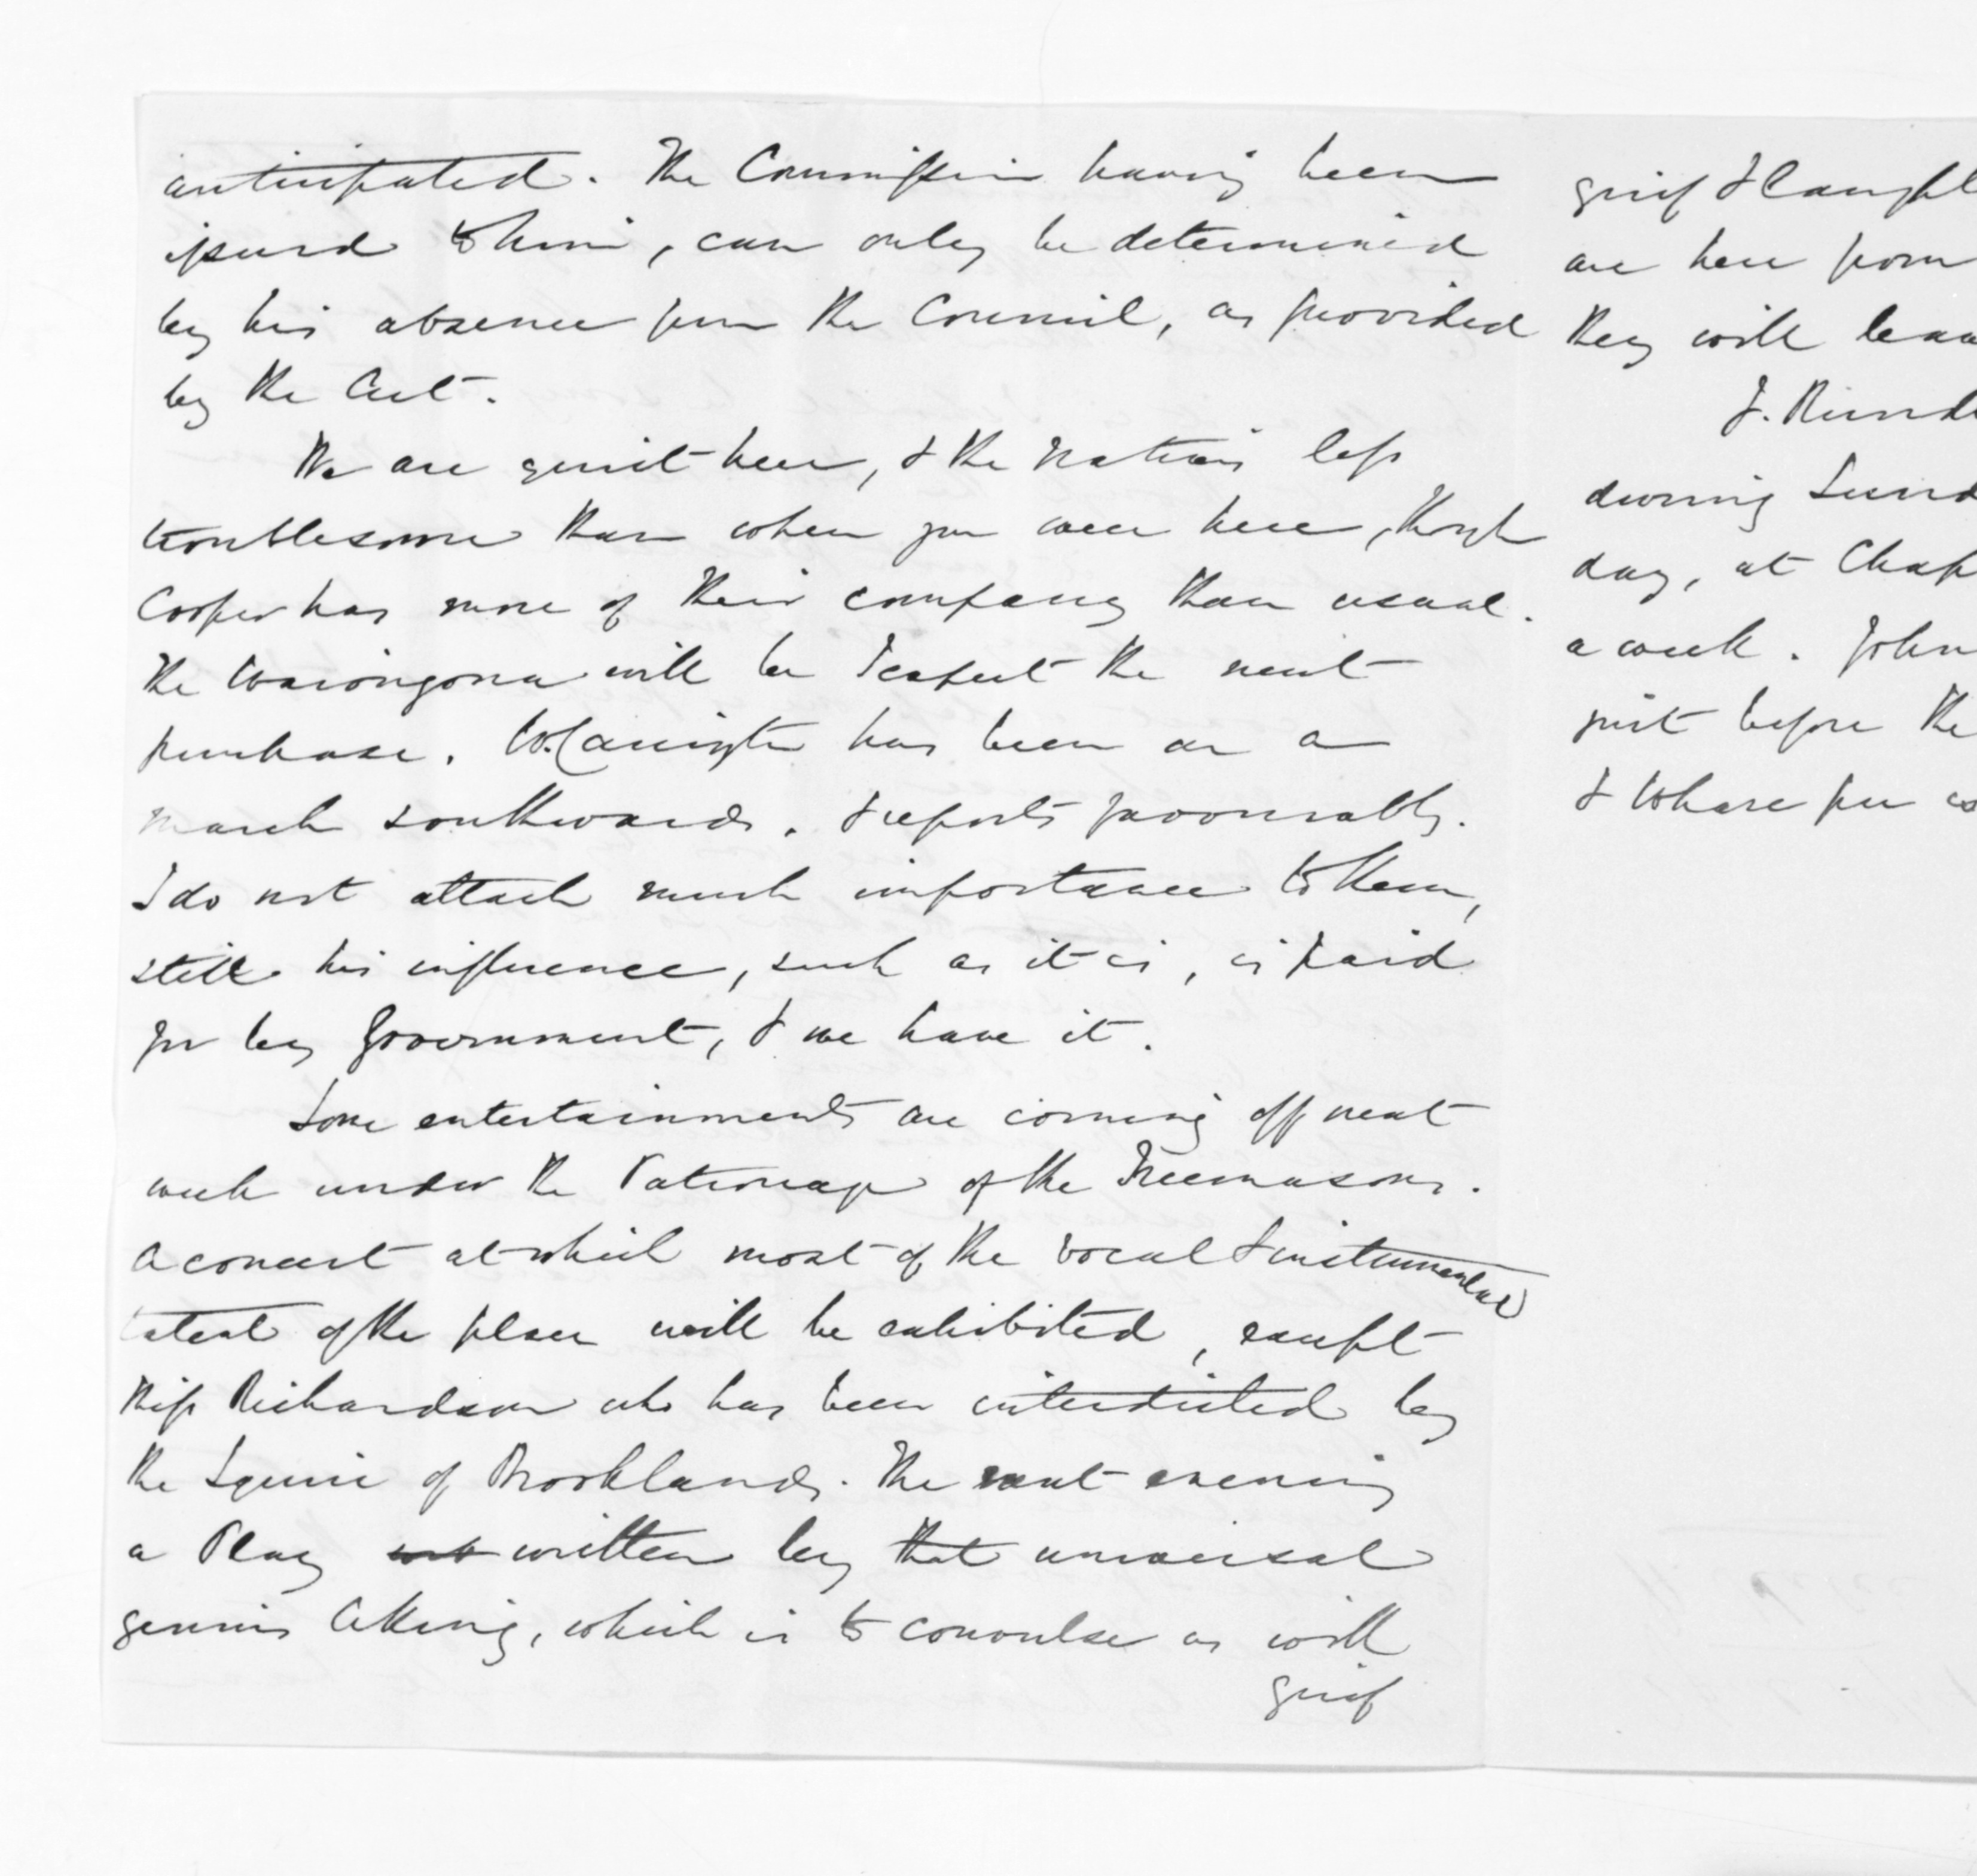 anticipated. The Commission having been
issued to him, can only be determined
by his absence from the Council, as provided
by the Act.
We are quiet here, & the natives less
troublesome than when you were here, though
Cooper has more of their company than usual.
The Waiongona will be I expect the next
purchase. W. Carrington has been on a
march southwards. & reports favourably.
I do not attach much importance to them,
still his influence, such as it is, is paid
for by Government, & we have it.
Some entertainments are coming off next
week under the Patronage of the Freemasons.
A concert at which most of the vocal & instrumental
talent of the place will be exhibited, except
Miss Richardson who has been interdicted by
the Squire of Brooklands. The next evening
a Play written by that universal
genius Aking, which is to convulse us with
grief
grief & laught
are here from
they will leave
J. Rund
during Sund
day, at Chap
a week. John
just before the
& Whare